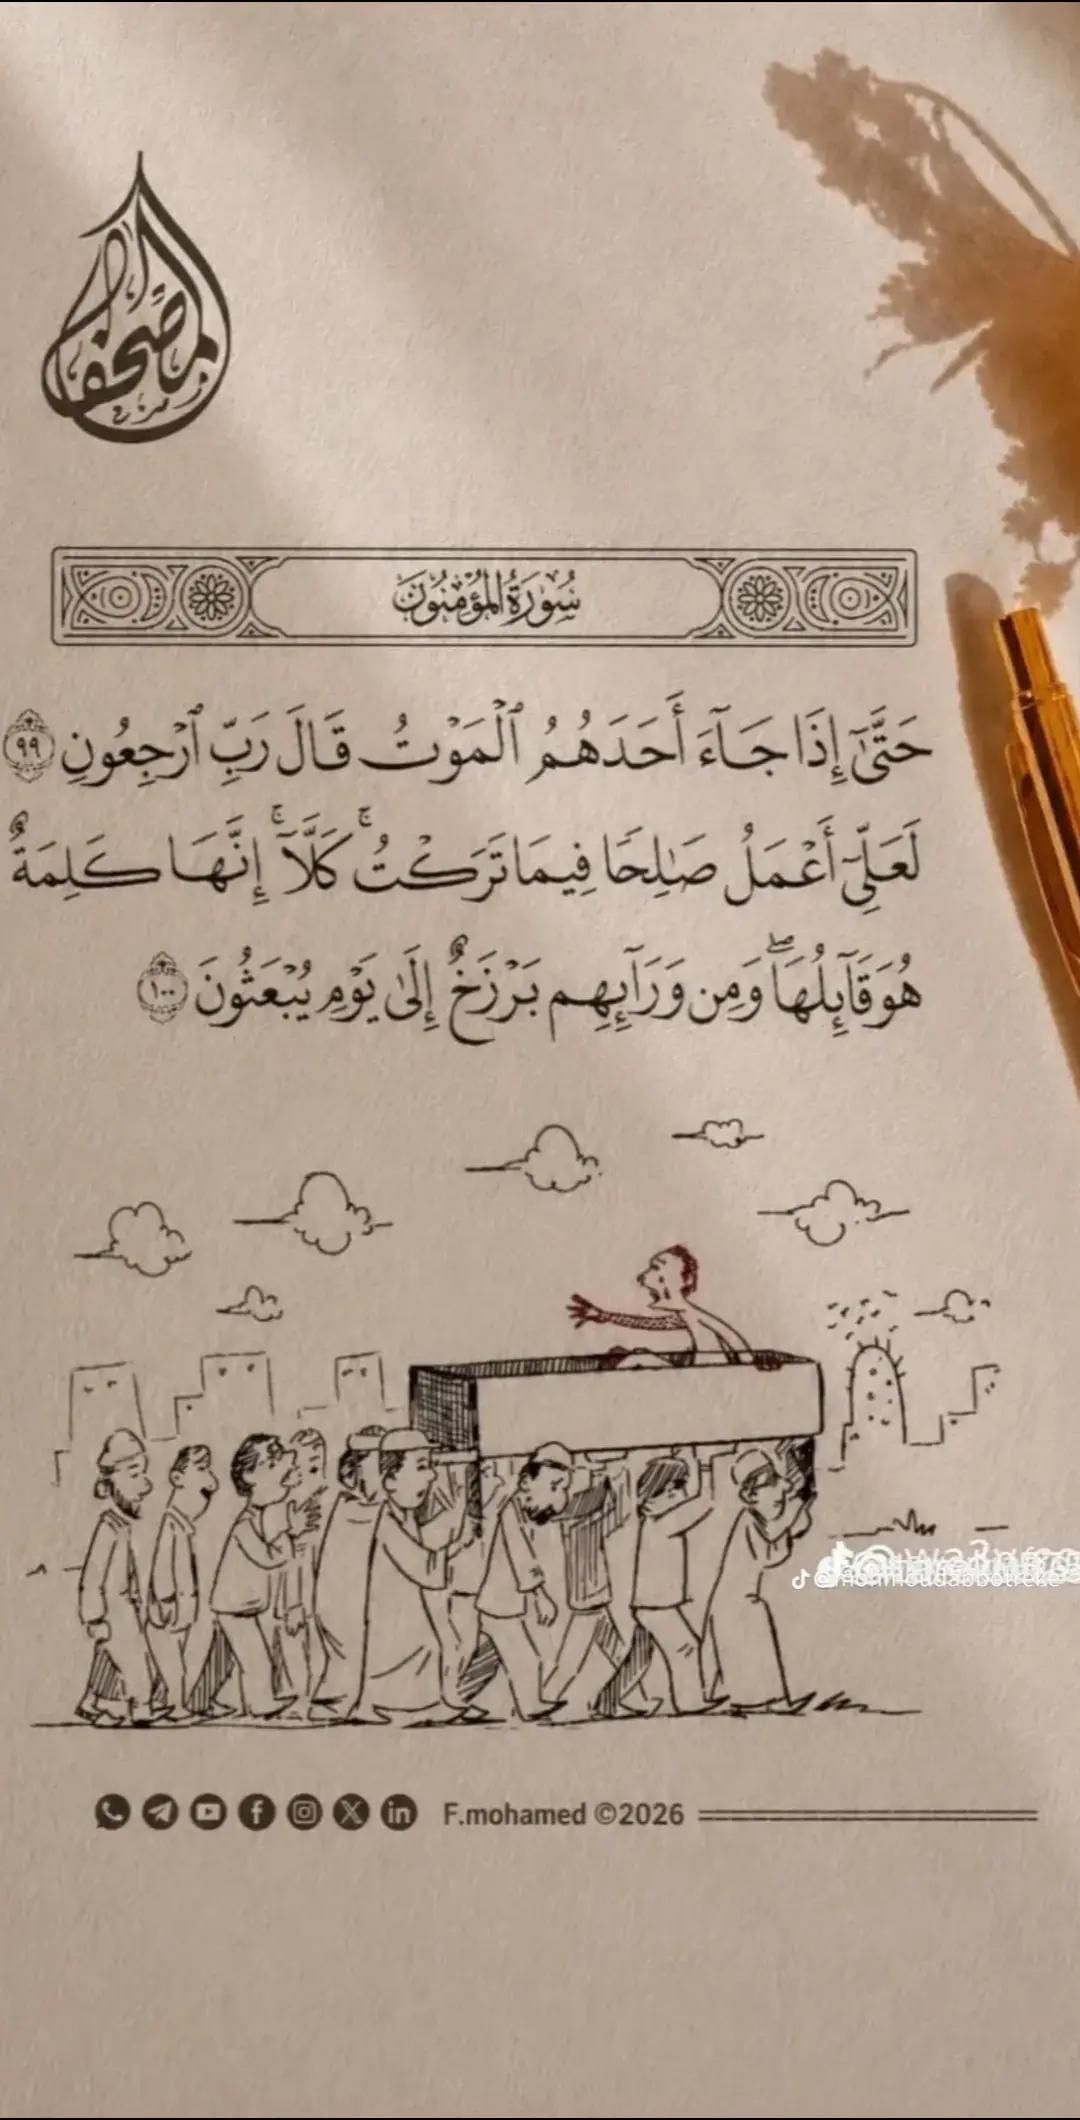 سُورَةُ المُؤْمِنُون
حَتَّىٰٓ إِذَا جَآءَ أَحَدَهُمُ ٱلْمَوْتُ قَالَ رَبِّ ٱرْجِعُونِ ٩٩
لَعَلِّىٓ أَعْمَلُ صَـٰلِحًا فِيمَا تَرَكْتُ ۚ كَلَّآ ۚ إِنَّهَا كَلِمَةٌ
هُوَ قَآئِلُهَا ۖ وَمِن وَرَآئِهِم بَرْزَخٌ إِلَىٰ يَوْمِ يُبْعَثُونَ ١٠٠
F.mohamed ©2026